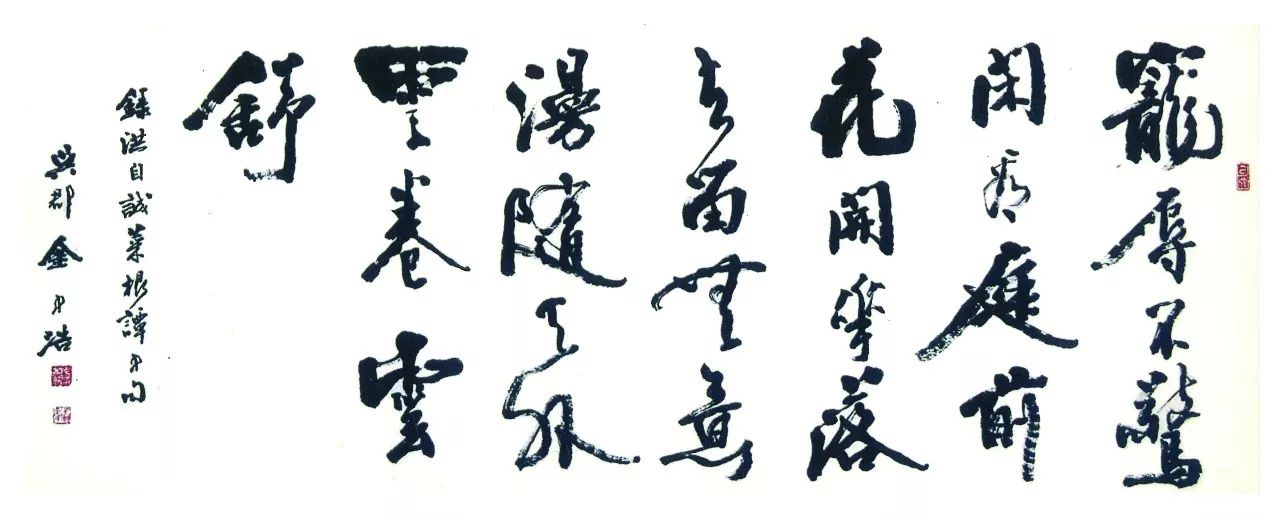 寵辱不驚
閑看庭前
花開華落
去留無意
漫隨天外
雲卷雲
舒
錄洪自誠菜根譚中句
吳郡金中浩